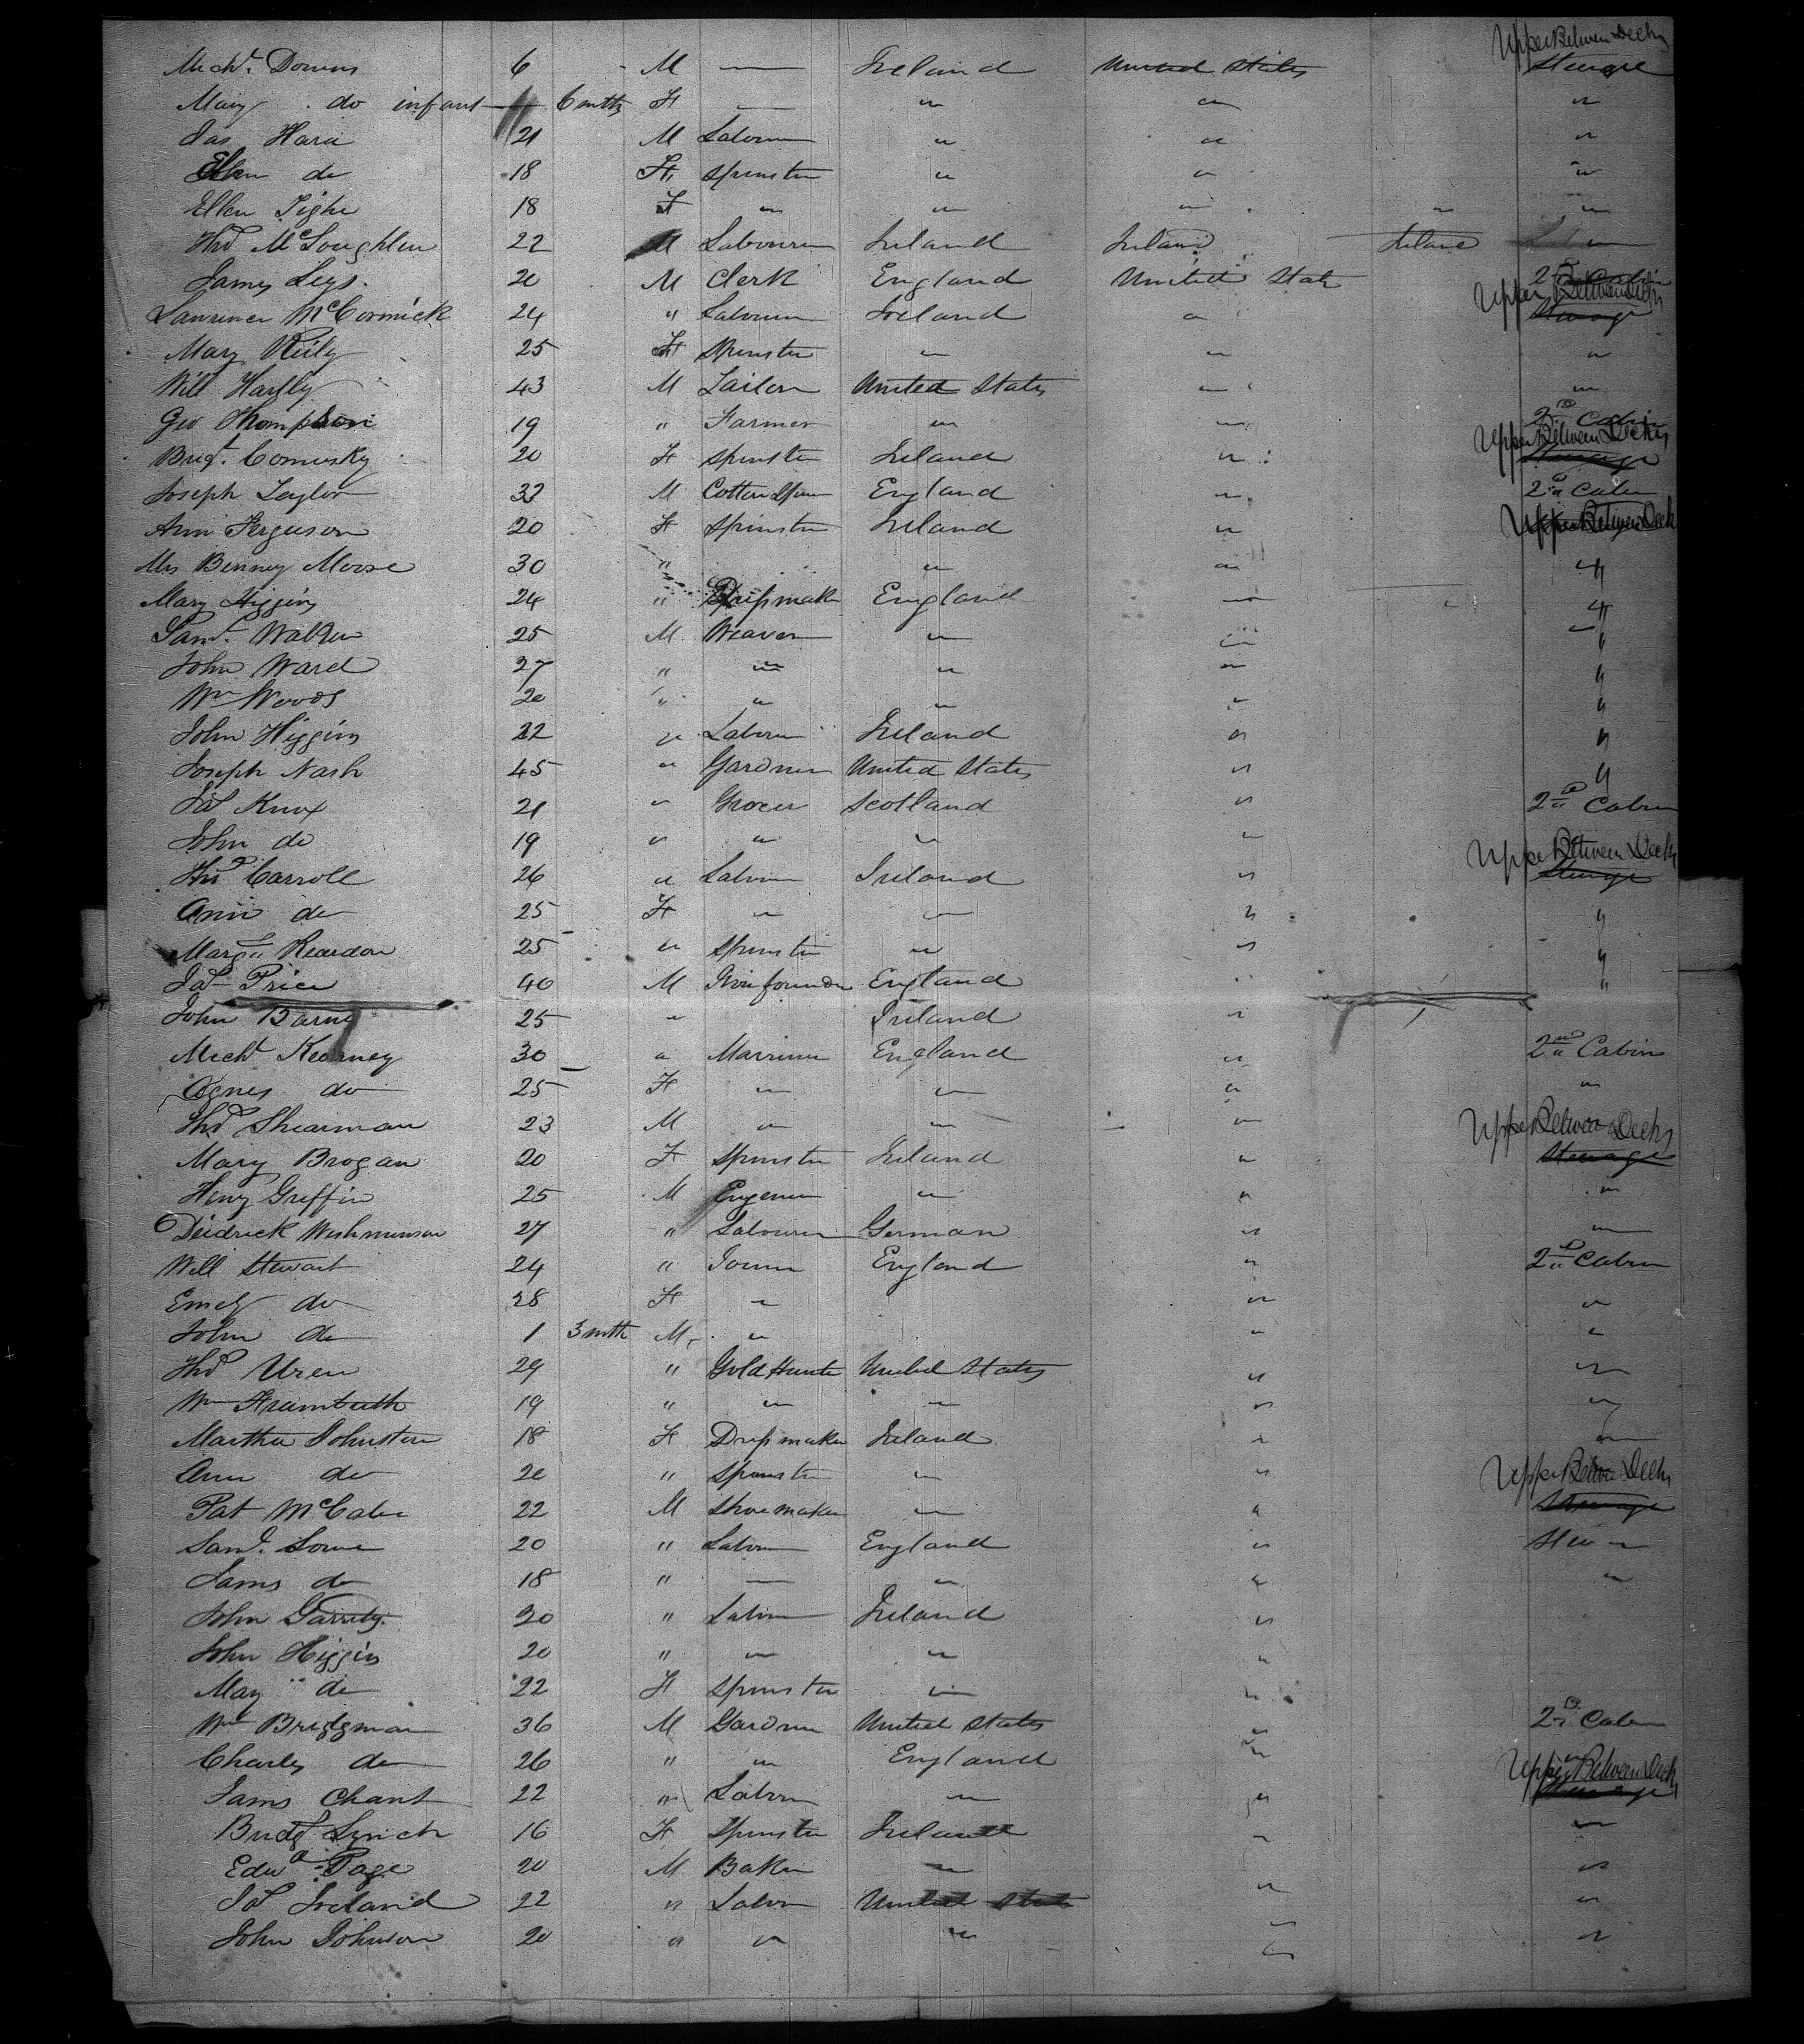 Michl. Downs 6 M — Ireland United States Upper Between Decks Steerage
Mary do infant 6 mths F — " " "
Jas Hara 21 M Labourer " " "
Ellen do 18 F Spinster " " "
Ellen Tighe 18 F " " " " "
Thos McLoughlin 22 M Labourer Ireland Ireland Ireland "
James Legs. 20 M Clerk England United State 2nd Cabin
Lawrence McCormick 24 " Labourer Ireland " Upper Between Decks Steerage
Mary Reily 25 F Spinster " " "
Will Hartly 43 M Tailor United States " "
Geo Thompson 19 " Farmer " " 2nd Cabin
Bridt. Comusky 20 F Spinster Ireland " Upper Between Decks Steerage
Joseph Taylor 33 M Cotton Spin England " 2nd Cabin
Ann Ferguson 20 F Spinster Ireland " Upper Between Deck
Mrs Benney Moore 30 " " " "
Mary Higgins 24 " Dressmaker England " "
Saml. Walker 25 M Weaver " " "
John Ward 27 " " " " "
Wm Woods 20 " " " " "
John Higgins 22 " Labourer Ireland " "
Joseph Nash 45 " Gardner United States " "
Jas Knox 21 " Grocer Scotland " 2nd Cabin
John do 19 " " " "
Thos Carroll 26 " Labourer Ireland " Upper Between Decks Steerage
Ann do 25 F " " " "
Margt Reardon 25 " Spinster " " "
Jas Price 40 M Iron founder England " "
John Barny 25 " Ireland "
Michl Kearney 30 " Marriner England " 2nd Cabin
Agnes do 25 F " " " "
Thos Shearman 23 M " " " Upper Between Decks
Mary Brogan 20 F Spinster Ireland " Steerage
Henry Griffin 25 M Engeneer " " "
Deidrick 27 " Labourer German " "
Will Stewart 24 " Joiner England " 2nd Cabin
Emely do 28 F " " "
John do 1 3 mth M " " "
Thos Uren 29 " Gold Hunter United States " "
Wm 19 " " " " "
Martha Johnston 18 F Dressmaker Ireland " "
Ann do 20 " Spinster " " Upper Between Decks
Pat McCabe 22 M Shoemaker " " Steerage
Saml. Lowe 20 " Labourer England " Stee "
James do 18 " — " " "
John Garrity. 20 " Labourer Ireland "
John Higgins 20 " " " "
May do 22 F Spinster " "
Wm Bridgman 36 M Gardner United States " 2nd Cabin
Charles do 26 " " England " "
James Chant 22 " Labourer " " Upper Between Decks Steerage
Bridgt Lynch 16 F Spinster Ireland " "
Edwd Page 20 M Baker " "
Jas Ireland 22 " Labour United States " "
John Johnson 20 " " " " "